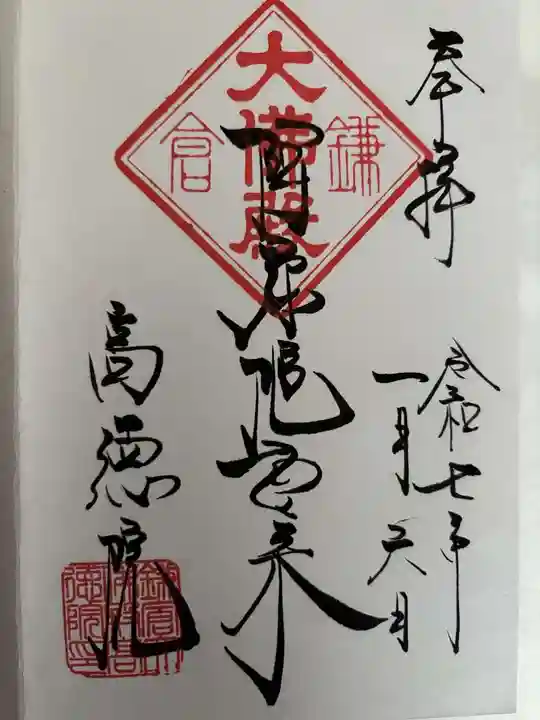 奉拝
令和七年
一月六日
鎌倉
大佛殿
阿弥陀如来
高徳院